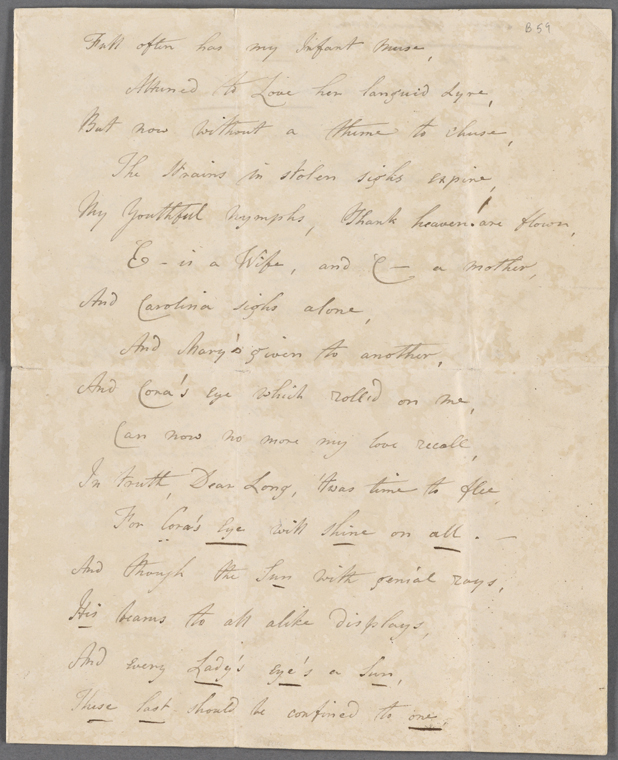 B 59
Full often has my Infant Muse,
Attuned to Love her languid Lyre,
But now without a theme to chuse,
The Strains in stolen sighs expire,
My Youthful Nymphs, Thank heaven! are flown,
E – is a Wife, and C – a mother,
And Carolina sighs alone,
And Mary's given to another,
And Cora's eye which roll'd on me,
Can now no more my love recall,
In truth, Dear Long, 'twas time to flee,
For Cora's Eye will shine on all. —
And though the Sun with genial rays,
His beams to all alike displays,
And every Lady's eye's a Sun,
These last should be confined to one.